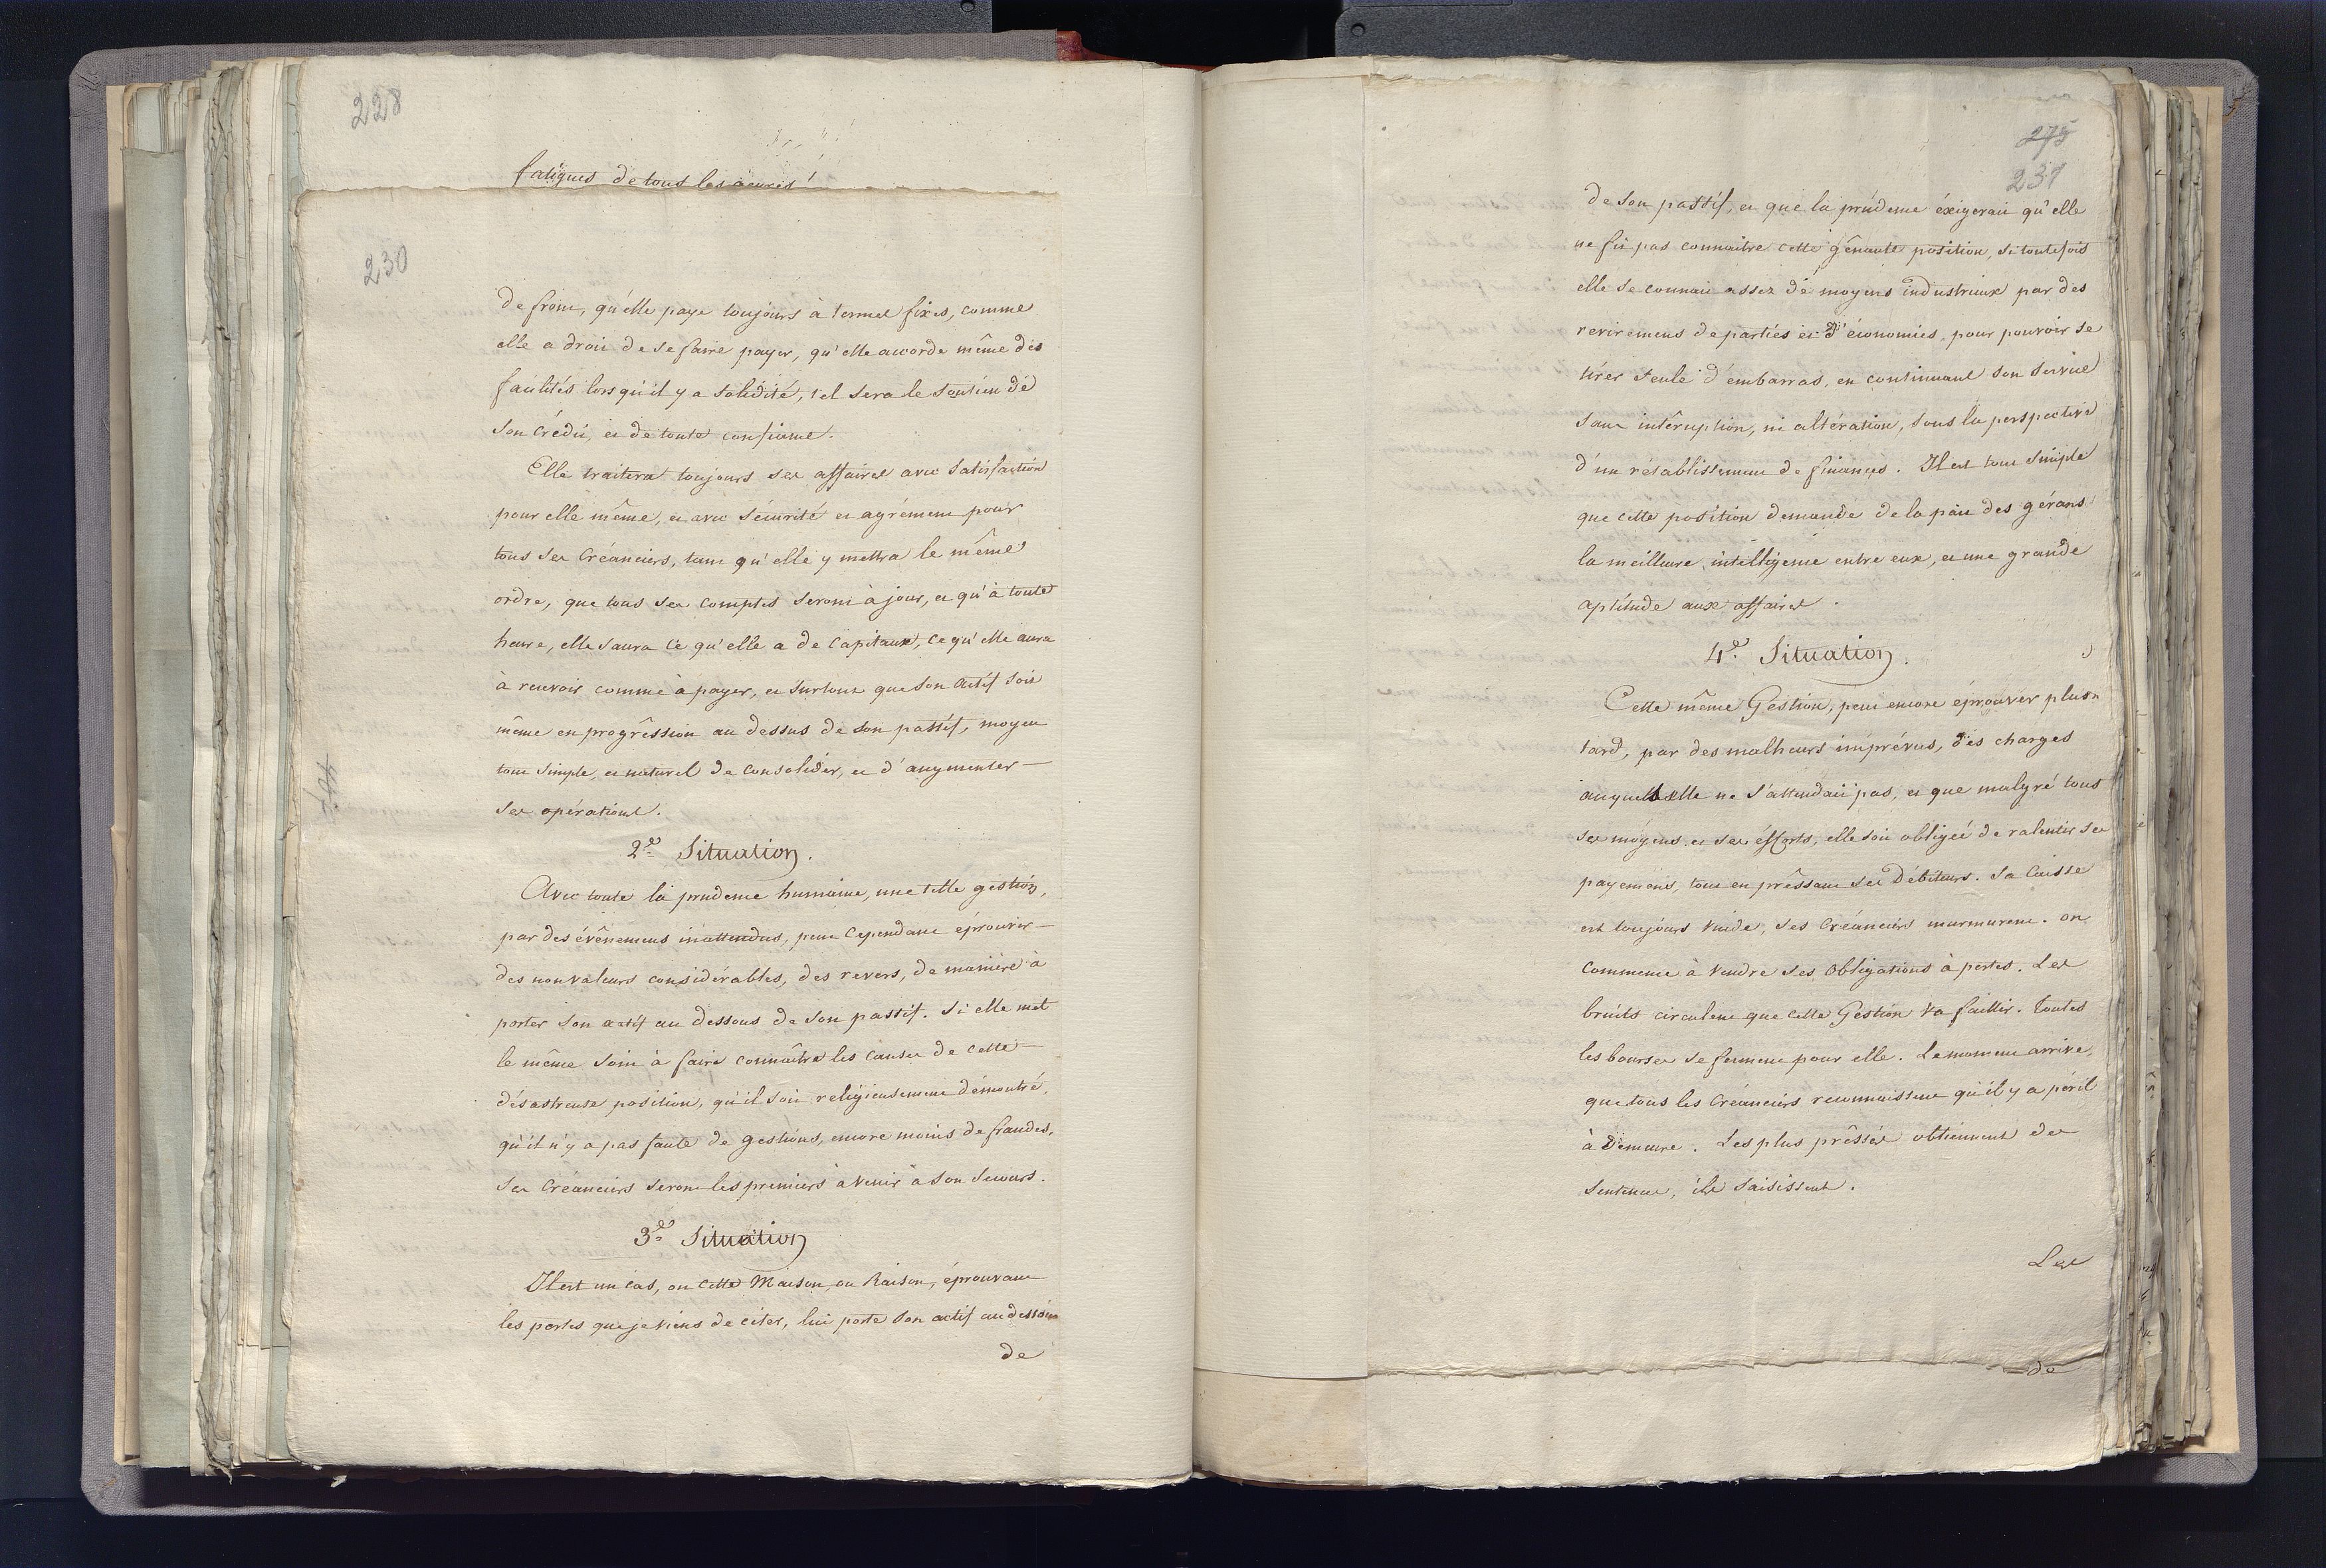 228
fatigues de tous les
230
de front, qu'elle paye toujours à termes fixes, comme
elle a droit de se faire payer, qu'elle accorde même des
facilités lorsqu'il y a solidité, tel sera le soutien de
son crédit, et de toute confiance.
Elle traitera toujours ses affaires avec satisfaction
pour elle même, et avec sécurité et agrément pour
tous ses Créanciers, tant qu'elle y mettra le même
ordre, que tous ses comptes seront à jour, et qu'à toute
heure, elle saura ce qu'elle a de Capitaux, ce qu'elle aura
à recevoir comme à payer, et surtout que son actif soit
même en progrêssion au dessus de son passif, moyen
tout simple, et naturel de consolider, et d'augmenter —
ses opérations.
2e. Situation.
Avec toute la prudence humaine, une telle gestion,
par des évênemens inattendus, peut cependant éprouver —
des nonvaleurs considérables, des revers, de manière à
porter son actif au dessous de son passif. Si elle met
le même soin à faire connaître les causes de cette —
désastreuse position, qu'il soit religieusement démontré,
qu'il n'y a pas faute de gestions, encore moins de fraudes,
ses Créanciers seront les premiers à venir à son secours.
3e. Situation
Il est un cas, ou cette Maison, ou Raison, éprouvant
les pertes que je viens de citer, lui porte son actif au dessous
de
275
231
de son passif, et que la prudence éxigerait qu'elle
ne fit pas connaitre cette gênante position, si toutefois
elle se connait assez de moyens industriaux par des
reviremens de parties et d'économies, pour pouvoir se
tirer seule d'embarras, en continuant son service
sans intéruption, ni altération, sous la perspective
d'un rétablissement de finances. Il est tout simple
que cette position demande de la part des gérans
la meilleure intelligence entre eux, et une grande
aptitude aux affaires.
4e. Situation.
Cette même Gestion, peut encore éprouver plus
tard, par des malheurs imprévus, des charges
auxquels elle ne s'attendait pas, et que malgré tous
ses moyens et ses éfforts, elle soit obligée de ralentir ses
payemens, tout en prêssant ses Débiteurs. Sa Caisse
est toujours vuide, ses Créanciers murmurent. on
commence à vendre ses obligations à pertes. Les
bruits circulent que cette Gestion va faillir. Toutes
les bourses se ferment pour elle. Le moment arrive,
que tous les Créanciers reconnaissent qu'il y a péril
à demeure. Les plus prêssés obtiennent des
sentences, ils saisissent.
Les
de